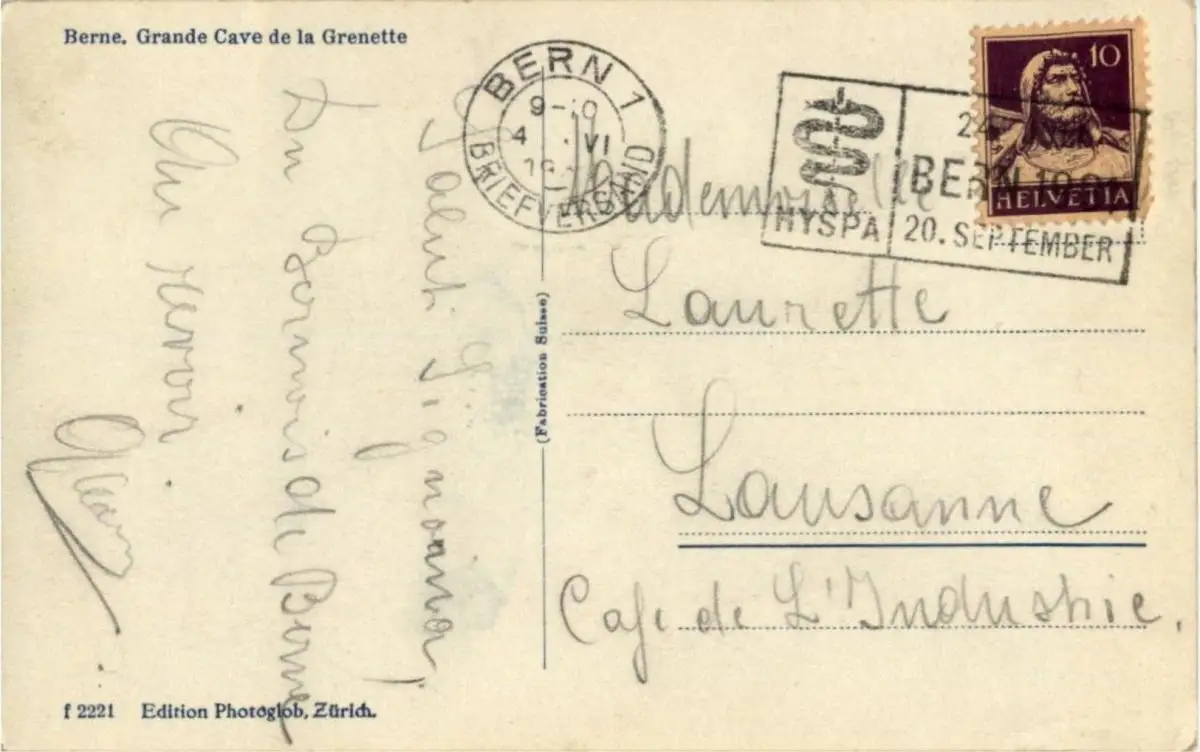 Berne. Grande Cave de la Grenette
BERN 1
9-10
4 VI
BRIEFVERSAND
HYSPA
24
BERN 19
20. SEPTEMBER
10
HELVETIA
Salut Signorina,
Du Bernois de Berne
Au revoir.
Mademoiselle
Laurette
Lausanne
Cafe de L'Industrie.
(Fabrication Suisse)
f 2221 Edition Photoglob, Zürich.